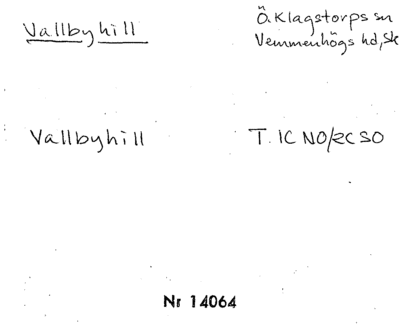 Vallbyhill
Ö. Klagstorps sn
Vemmenhögs hd, Sk
Vallbyhill
T. 1C NO/2C SO
Nr 14064